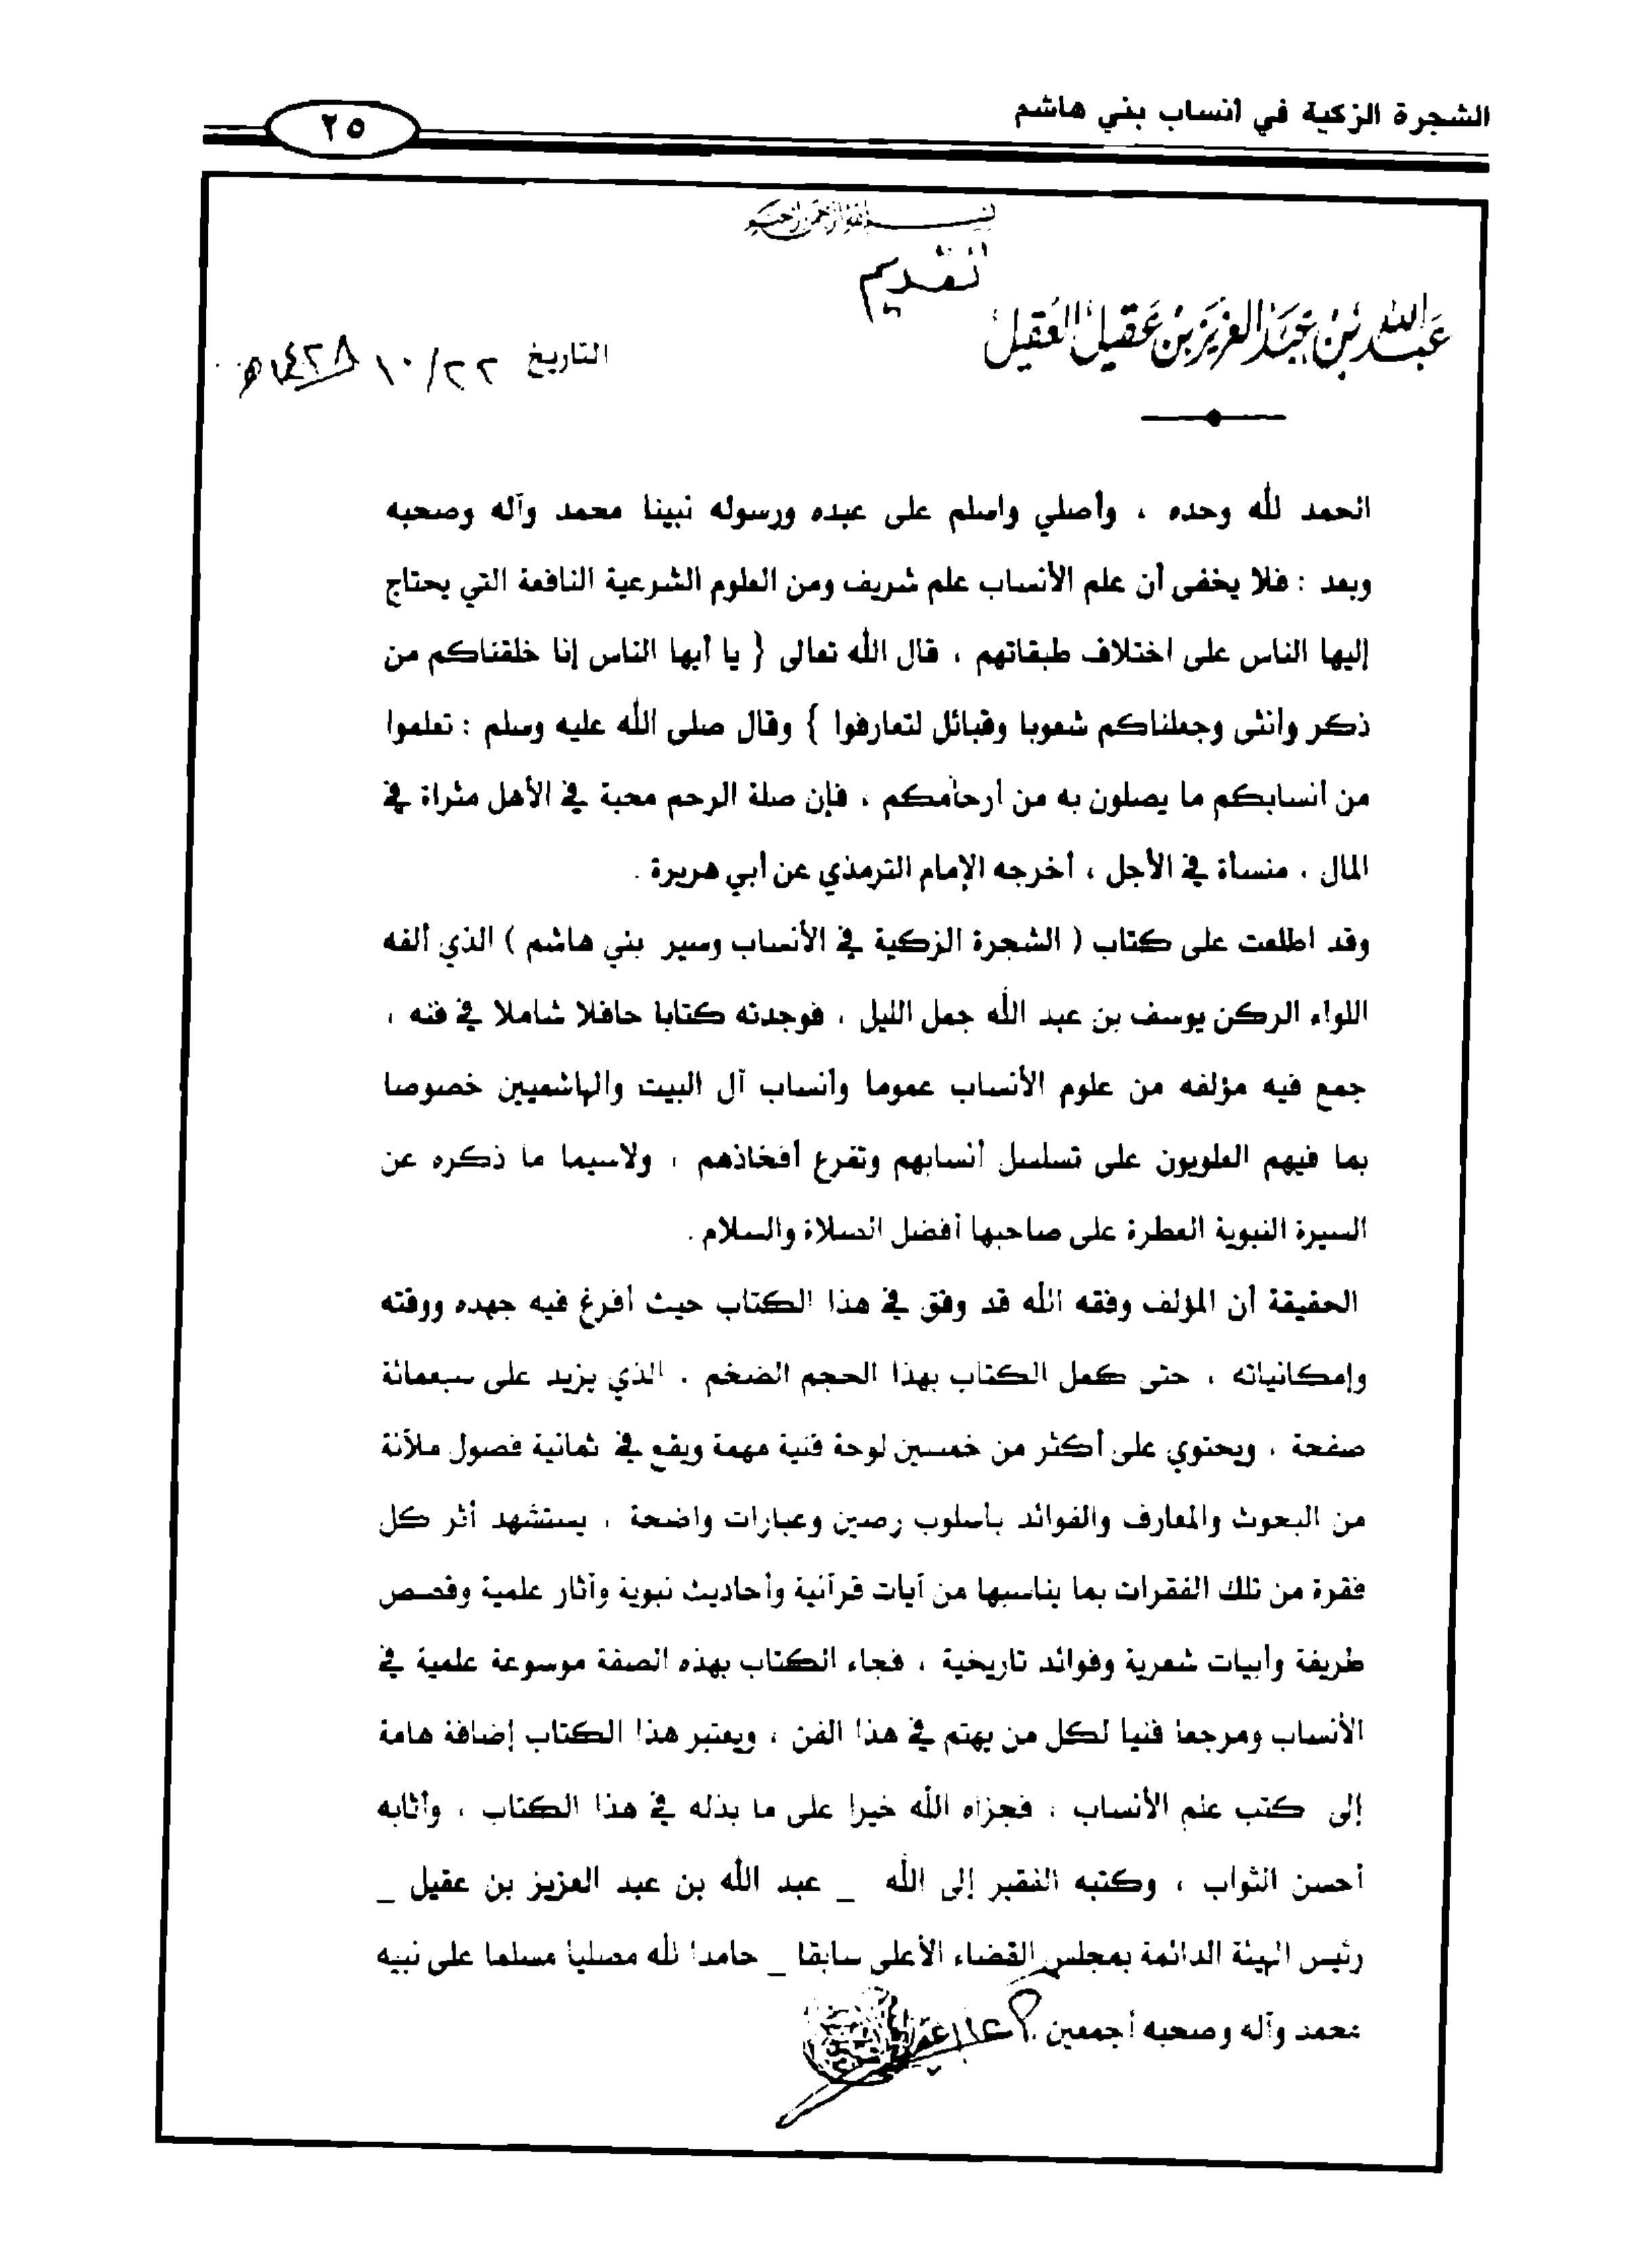 الشجرة الزكية في أنساب بني هاشم
٢٥
بسم الله الرحمن الرحيم
تقديم
عبد الله بن عبد العزيز بن عقيل العقيل
التاريخ ٢٢/١٠/١٤٢٨هـ
الحمد لله وحده ، وأصلي وأسلم على عبده ورسوله نبينا محمد وآله وصحبه
وبعد : فلا يخفى أن علم الأنساب علم شريف ومن العلوم الشرعية النافعة التي يحتاج
إليها الناس على اختلاف طبقاتهم ، قال الله تعالى { يا أيها الناس إنا خلقناكم من
ذكر وانثى وجعلناكم شعوبا وقبائل لتعارفوا } وقال صلى الله عليه وسلم : تعلموا
من أنسابكم ما يصلون به من أرحامكم ، فإن صلة الرحم محبة في الأهل مثراة في
المال ، منسأة في الأجل ، أخرجه الإمام الترمذي عن أبي هريرة .
وقد اطلعت على كتاب ( الشجرة الزكية في الأنساب وسير بني هاشم ) الذي ألفه
اللواء الركن يوسف بن عبد الله جمل الليل ، فوجدته كتابا حافلا شاملا في فنه ،
جمع فيه مؤلفه من علوم الأنساب عموما وأنساب آل البيت والهاشميين خصوصا
بما فيهم العلويون على تسلسل أنسابهم وتفرع أفخاذهم ، ولاسيما ما ذكره عن
السيرة النبوية العطرة على صاحبها أفضل الصلاة والسلام .
الحقيقة أن المؤلف وفقه الله قد وفق في هذا الكتاب حيث أفرغ فيه جهده ووقته
وإمكانياته ، حتى كمل الكتاب بهذا الحجم الضخم ، الذي يزيد على سبعمائة
صفحة ، ويحتوي على أكثر من خمسين لوحة فنية مهمة ويقع في ثمانية فصول ملآنة
من البحوث والمعارف والفوائد بأسلوب رصين وعبارات واضحة ، يستشهد أثر كل
فقرة من تلك الفقرات بما يناسبها من آيات قرآنية وأحاديث نبوية وآثار علمية وقصص
طريفة وأبيات شعرية وفوائد تاريخية ، فجاء الكتاب بهذه الصفة موسوعة علمية في
الأنساب ومرجعا فنيا لكل من يهتم في هذا الفن ، ويعتبر هذا الكتاب إضافة هامة
إلى كتب علم الأنساب ، فجزاه الله خيرا على ما بذله في هذا الكتاب ، وأثابه
أحسن الثواب ، وكتبه الفقير إلى الله _ عبد الله بن عبد العزيز بن عقيل _
رئيس الهيئة الدائمة بمجلس القضاء الأعلى سابقا _ حامدا لله مصليا مسلما على نبيه
محمد وآله وصحبه أجمعين .